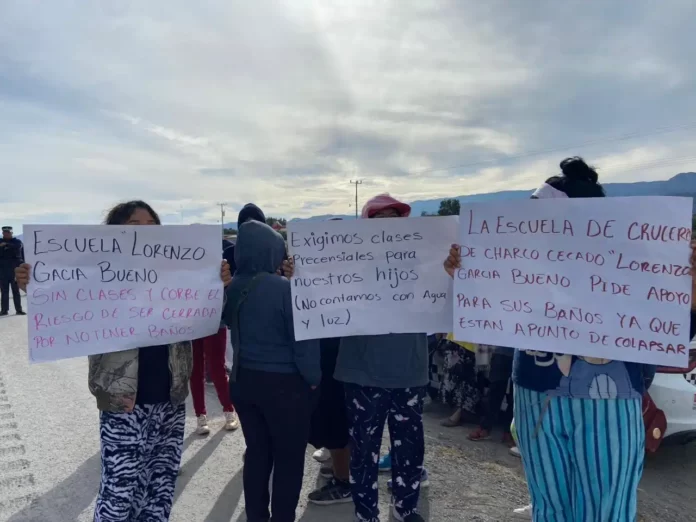 ESCUELA "LORENZO
GACIA BUENO
SIN CLASES Y CORRE EL
RIESGO DE SER CERRADA
POR NO TENER BAÑOS
Exigimos clases
Precensiales para
nuestros hijos
(No contamos con Agua
y luz)
LA ESCUELA DE CRUCERO
DE CHARCO CECADO "LORENZO
GARCIA BUENO PIDE APOYO
PARA SUS BAÑOS YA QUE
ESTAN APUNTO DE COLAPSAR